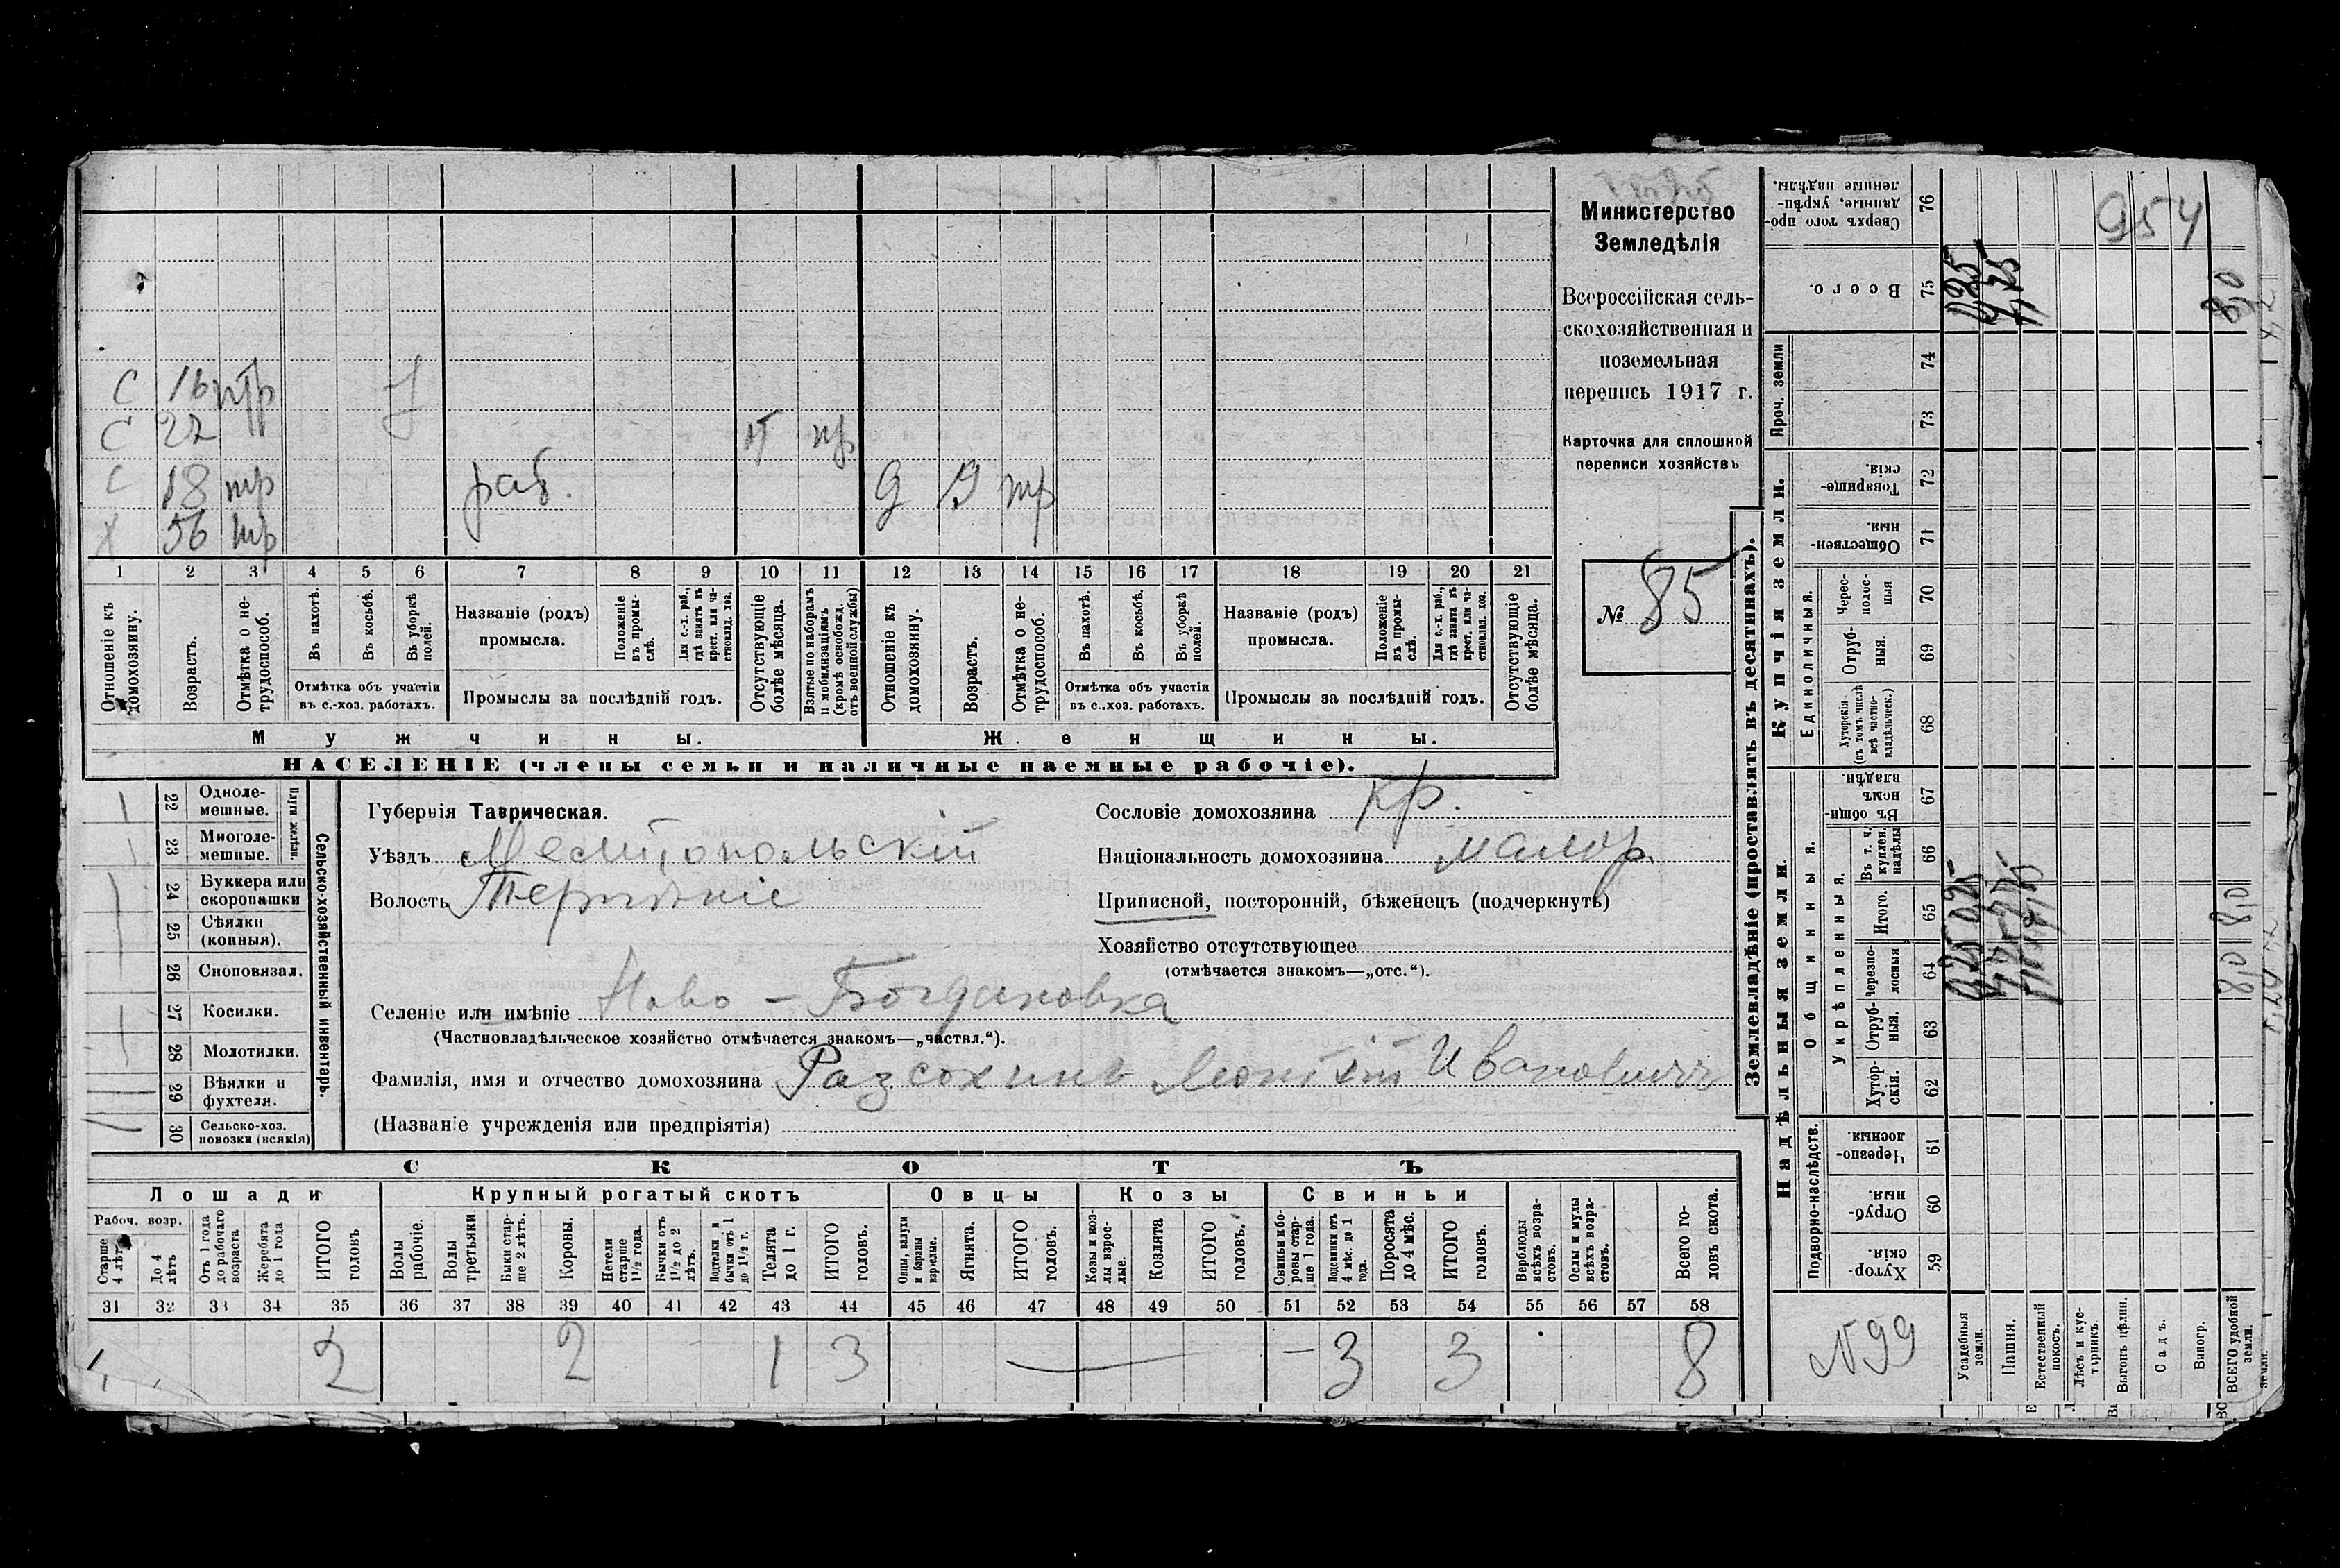 С 16 тр
С 22 тр
С 18 тр раб. Д 19 тр
Х 56 тр
1 2 3 4 5 6 7 8 9 10 11 12 13 14 15 16 17 18 19 20 21
Отношеніе къ домохозяину.
Возрастъ.
Отмѣтка о не-трудоспособ.
Въ пахотѣ.
Въ косьбѣ.
Въ уборкѣ полей.
Отмѣтка объ участіи
въ с.-хоз. работахъ.
Названіе (родъ)
промысла.
Положеніе въ промы-слѣ.
Для с.-х. раб., гдѣ занятъ въ крест. или ча-стновлад. хоз.
Промыслы за послѣдній годъ.
Отсутствующіе болѣе мѣсяца.
Взятые по наборамъ и мобилизаціямъ (кромѣ освобожд. отъ военной службы)
Отношеніе къ домохозяину.
Возрастъ.
Отмѣтка о не-трудоспособ.
Въ пахотѣ.
Въ косьбѣ.
Въ уборкѣ полей.
Отмѣтка объ участіи
въ с.-хоз. работахъ.
Названіе (родъ)
промысла.
Положеніе въ промы-слѣ.
Для с.-х. раб., гдѣ занята въ крест. или ча-стновлад. хоз.
Промыслы за послѣдній годъ.
Отсутствующіе болѣе мѣсяца.
Мужчины.
Женщины.
НАСЕЛЕНІЕ (члены семьи и наличные наемные рабочіе).
Министерство
Земледѣлія
Всероссійская сель-
скохозяйственная и
поземельная
перепись 1917 г.
Карточка для сплошной
переписи хозяйствъ
№ 85
22 Одноле-мешные.
23 Многоле-мешные.
Плуги желѣзн.
24 Буккера или скоропашки
25 Сѣялки (конныя).
26 Сноповязал.
27 Косилки.
28 Молотилки.
29 Вѣялки и фухтеля.
30 Сельско-хоз. повозки (всякія)
Сельско-хозяйственный инвентарь.
Губернія Таврическая.
Уѣздъ Мелитопольскій
Волость Терпѣніе
Селеніе или имѣніе Ново-Богдановка
(Частновладѣльческое хозяйство отмѣчается знакомъ—„частвл.“).
Фамилія, имя и отчество домохозяина Разсохинъ Леонтій Ивановичъ
(Названіе учрежденія или предпріятія)
Сословіе домохозяина кр.
Національность домохозяина малор.
Приписной, посторонній, бѣженецъ (подчеркнуть)
Хозяйство отсутствующее
(отмѣчается знакомъ—„отс.“).
СКОТЪ
Лошади
Крупный рогатый скотъ
Овцы
Козы
Свиньи
Рабоч. возр.
Старше 4 лѣтъ
До 4 лѣтъ
Отъ 1 года до рабочаго возраста
Жеребята до 1 года
ИТОГО головъ
Волы рабочіе.
Волы третьяки
Быки стар-ше 2 лѣтъ.
Коровы.
Нетели старше 1½ года.
Бычки отъ 1½ до 2 лѣтъ.
Подтелки и бычки отъ 1 до 1½ г.
Телята до 1 г.
ИТОГО головъ.
Овцы, валухи и бараны взрослые.
Ягнята.
ИТОГО головъ.
Козы и коз-лы взрос-лые.
Козлята
ИТОГО головъ.
Свиньи и бо-ровы стар-ше 1 года.
Подсвинки отъ 4 мѣс. до 1 года.
Поросята до 4 мѣс.
ИТОГО головъ.
Верблюды всѣхъ возра-стовъ.
Ослы и мулы всѣхъ возра-стовъ.
Всего го-ловъ скота.
31 32 33 34 35 36 37 38 39 40 41 42 43 44 45 46 47 48 49 50 51 52 53 54 55 56 57 58
2 2 1 3 3 3 8
Землевладѣніе (проставлять въ десятинахъ).
Надѣльныя земли
Купчія земли.
Проч. земли
Подворно-наслѣдств.
Общинныя.
Укрѣпленныя.
Единоличныя.
76 Сверхъ того про-данные, укрѣп-ленные надѣлы.
75 Всего.
74
73
72 Товарище-скія.
71 Обществен-ныя.
70 Черес-полос-ныя
69 Отруб-ныя.
68 Хуторскія (въ томъ числѣ всѣ частно-владѣльческ.)
67 Въ общи-номъ владѣн.
66 Въ т. ч. куплен. надѣлы
65 Итого.
64 Черезпо-лосныя
63 Отруб-ныя.
62 Хутор-скія.
61 Черезпо-лосныя
60 Отруб-ныя.
59 Хутор-скія.
954
8,0
8,0 8,0
N99
Усадебныя земли.
Пашня.
Естественный покосъ.
Лѣсъ и кус-тарникъ.
Выгонъ цѣлин.
Садъ.
Виногр.
ВСЕГО удобной земли.